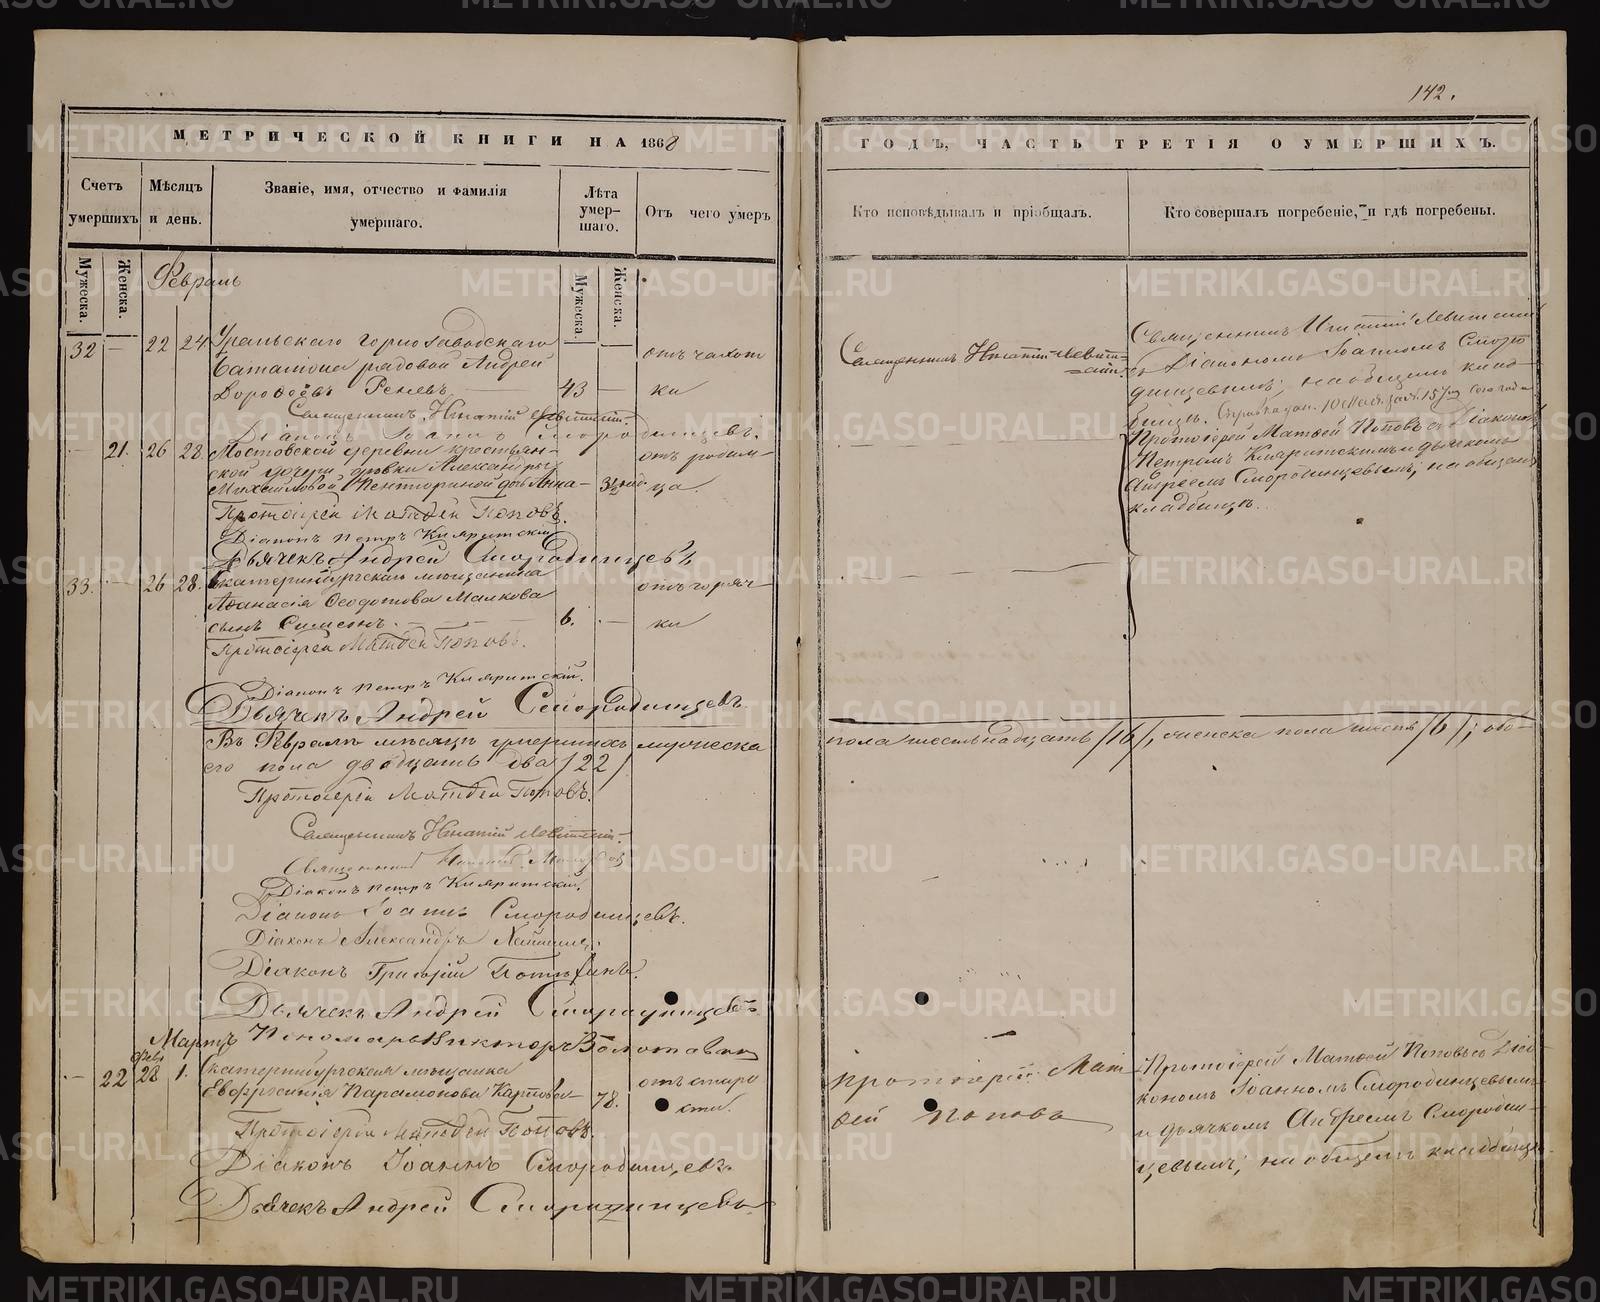 142.
МЕТРИЧЕСКОЙ КНИГИ НА 1868
ГОДЪ, ЧАСТЬ ТРЕТІЯ О УМЕРШИХЪ.
Счетъ умершихъ
Мѣсяцъ и день.
Званіе, имя, отчество и фамилія умершаго.
Лѣта умер-
шаго.
Отъ чего умеръ
Кто исповѣдывалъ и пріобщалъ.
Кто совершалъ погребеніе, и гдѣ погребены.
Мужеска.
Женска.
Мужеска.
Женска.
Февраль
32 — 22 24 Уральскаго Горнозаводскаго
Баталіона рядовой Андрей
Дороѳеевъ 43 —
отъ чахот
ки
Священникъ Игнатій Левитскій.
Діаконъ Іоаннъ Смородинцевъ.
Священникъ Игнатій
Священникъ Игнатій
съ Діакономъ Іоанномъ Сморо
динцевымъ; на общемъ клад
бищѣ.
— 21. 26 28 Мостовской деревни крестьян-
ской дочери дѣвки Александры
Михайловой дочь Анна —
отъ родим-
ца.
Протоіерей Матвей Поповъ.
Діаконъ Петръ
Дьячекъ Андрей Смородинцевъ
Протоіерей Матвей Поповъ съ Діакономъ
Петромъ и дьячкомъ
Андреемъ Смородинцевымъ; на общемъ
кладбищѣ.
33. — 26 28. Екатеринбургскаго мѣщанина
Аѳанасія Ѳеодотова Малкова
сынъ Симеонъ. 6. —
отъ горяч-
ки
Протоіерей Матвей Поповъ.
Діаконъ Петръ
Дьячекъ Андрей Смородинцевъ
Въ Февралѣ мѣсяцѣ умершихъ мужеска
пола шестьнадцать /16/, женска пола шесть /6/; обо-
его пола двадцать два /22/
Протоіерей Матвей Поповъ.
Священникъ Игнатій Левитскій
Священникъ
Діаконъ Петръ
Діаконъ Іоаннъ Смородинцевъ.
Діаконъ Александръ
Діаконъ Григорій
Дьячекъ Андрей Смородинцевъ
Пономарь Викторъ
Мартъ
Фев.
— 22 28 1. Екатеринбургская мѣщанка
Евфросинія Парамонова 78.
отъ старо
сти.
протоіерей Мат
вей Поповъ
Протоіерей Матвей Поповъ съ Діа-
кономъ Іоанномъ Смородинцевымъ
и дьячкомъ Андреемъ Смородин-
цевымъ; на общемъ кладбищѣ.
Протоіерей Матвей Поповъ.
Діаконъ Іоаннъ Смородинцевъ.
Дьячекъ Андрей Смородинцевъ
METRIKI.GASO-URAL.RU